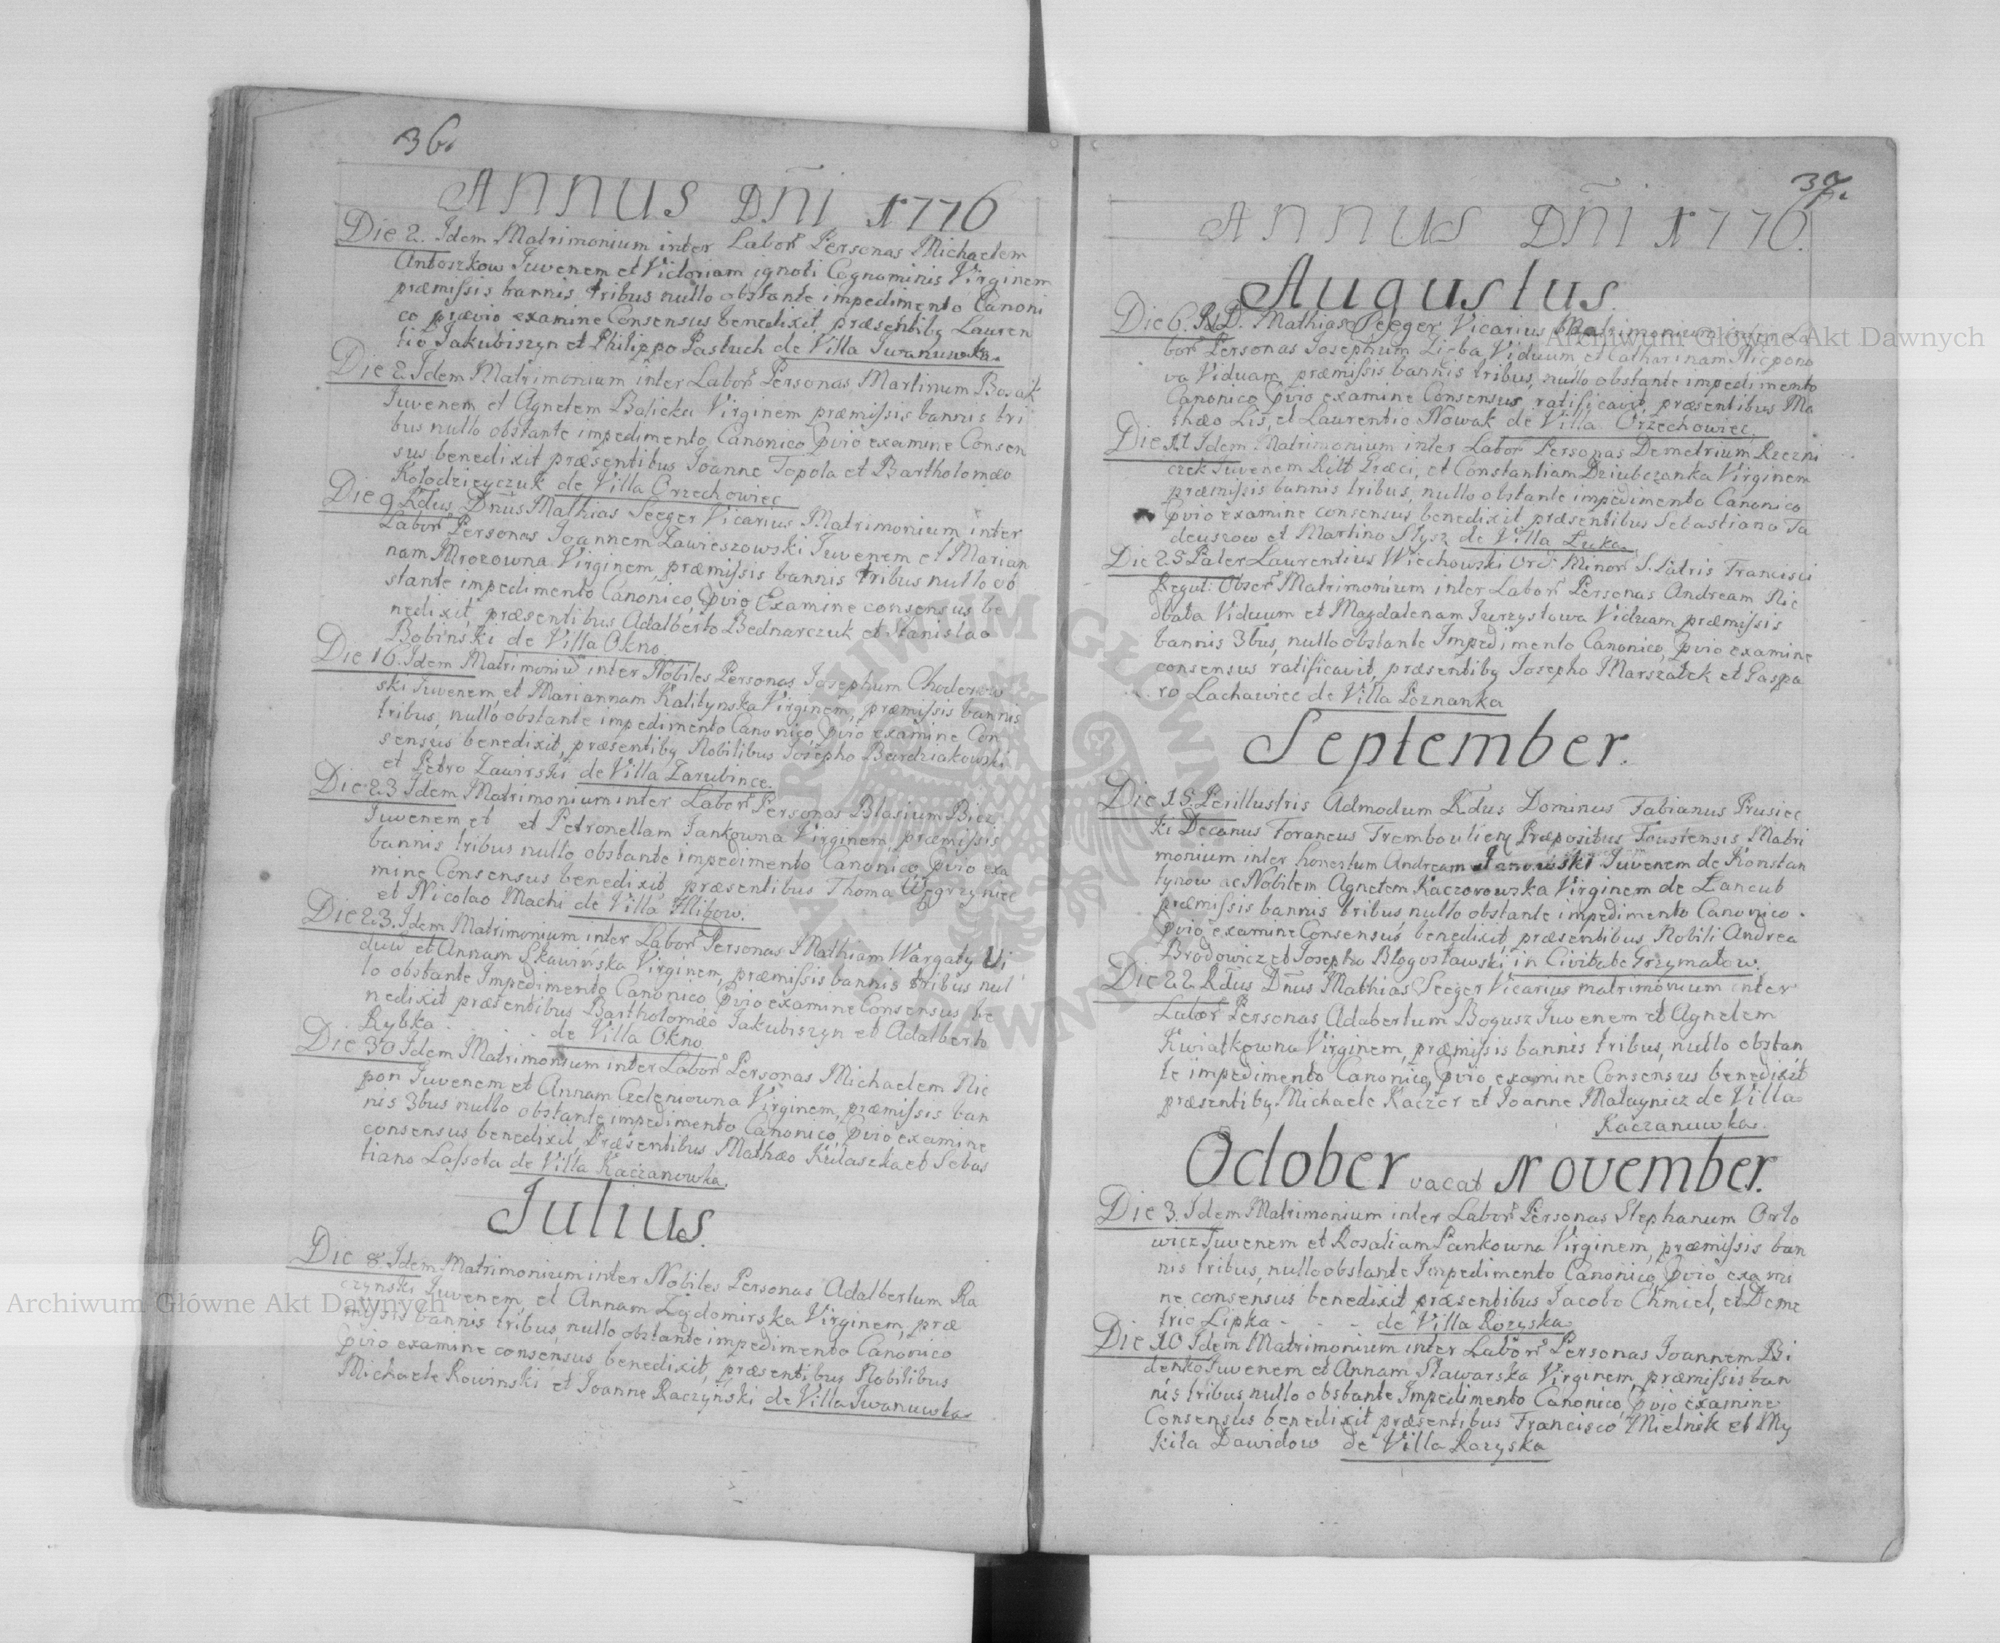 36.
ANNUS DñI 1776
Die 2. Idem Matrimonium inter Labor: Personas Michaelem
Antoszkow Iuvenem et Victoriam ignoti Cognominis Virginem
præmissis bannis tribus nullo obstante impedimento Canoni
co prævio examine Consensus benedixit, præsentiby Lauren
tio Jakubiszyn et Philippo Pastuch de Villa Iwanuwka.
Die 2. Idem Matrimonium inter Labor: Personas Martinum Bosak
Iuvenem et Agnetem Basicka Virginem præmissis bannis tri
bus nullo obstante impedimento Canonico pvio examine Consen
sus benedixit præsentibus Ioanne Topola et Bartholomæo
Kołodzieyczuk de Villa Orzechowiec
Die 9 Rdus Dñus Mathias Seeger Vicarius Matrimonium inter
Labor: Personas Joannem Zawieszowski Iuvenem et Marian
nam Mrozowna Virginem, præmissis bannis tribus nullo ob
stante impedimento Canonico, pvio Examine consensus be
nedixit, præsentibus Adalberto Bednarczuk et Stanislao
Bobinski de Villa Okno.
Die 16. Idem Matrimoniu inter Nobiles Personas Josephum Choderow
ski Iuvenem, et Mariannam Kalitynska Virginem, præmissis bannis
tribus, nullo obstante impedimento Canonico, pvio examine Con
sensus benedixit, præsentiby Nobilibus Josepho Berdziakowski
et Petro Zawirski de Villa Zarubince.
Die 23 Idem Matrimonium inter Labor: Personas Blasium Bicz
Iuvenem et et Petronellam Jankowna Virginem, præmissis
bannis tribus nullo obstante impedimento Canonico pvio exa
mine Consensus benedixit, præsentibus Thoma Węgrzyniec
et Nicolao Machi de Villa Hlibow.
Die 23. Idem Matrimonium inter Labor: Personas Mathiam Wargaty Vi
duu et Annam Skawinska Virginem, præmissis bannis tribus nul
lo obstante Impedimento Canonico, pvio examine Consensus be
nedixit præsentibus Bartholomæo Jakubiszyn et Adalberto
Rybka - - - de Villa Okno
Die 30 Idem Matrimonium inter Labor: Personas Michaelem Nic
pon Iuvenem et Annam Czeleniowna Virginem, præmissis ban
nis 3bus nullo obstante impedimento Canonico, pvio examine
consensus benedixit, Præsentibus Mathæo Kulaszka et Sebas
tiano Lassota de Villa Kaczanowka.
Julius.
Die 8. Idem Matrimonium inter Nobiles Personas Adalbertum Ra
czynski Iuvenem, et Annam Zydomirska Virginem, præ
missis bannis tribus, nullo obstante impedimento Canonico
pvio examine consensus benedixit, præsentibus Nobilibus
Michaele Rowinski et Joanne Raczynski de Villa Iwanuwka
37.
ANNUS DñI 1776.
Augustus.
Die 6. R.D. Mathias Seeger Vicarius Matrimonium inter La
bor: Personas Josephum Zięba Viduum et Catharinam Nicpono
va Viduam, præmissis bannis tribus, nullo obstante impedimento
Canonico, pvio examine Consensus ratificavit, præsentibus Ma
thæo Lis, et Laurentio Nowak de Villa Orzechowiec.
Die 11 Idem Matrimonium inter Labor: Personas Demetrium Rzezni
czek Iuvenem Ritt Græci, et Constantiam Dziubczanka Virginem
præmissis bannis tribus, nullo obstante impedimento Canonico
pvio examine consensus benedixit, præsentibus Sebastiano Ta
deuszow et Martino Słysz de Villa Luka
Die 25 Pater Laurentius Wiechowski Ord: Minor: S. Patris Francisci
Regul: Obser: Matrimonium inter Labor: Personas Andream Nie
dbała Viduum et Magdalenam Jurzystowa Viduam præmissis
bannis 3bus, nullo obstante Impedimento Canonico, pvio examine
consensus ratificavit, præsentiby Josepho Marszałek et Gaspa
ro Lachawiec de Villa Poznanka
September.
Die 15. Perillustris Admodum Rdus Dominus Fabianus Prusiec
ki Decanus Foraneus Trembovlien: Præpositus Toustensis Matri
monium inter honestum Andream Janowski Iuvenem de Konstan
tynow ac Nobilem Agnetem Kaczorowska Virginem de Lancut
præmissis bannis tribus nullo obstante impedimento Canonico.
pvio examine Consensus benedixit, præsentibus, Nobili Andrea
Brodowicz et Josepho Błogosławski in Civitate Grzymałow.
Die 22. Rdus Dñus Mathias Seeger Vicarius matrimonium inter
Labor: Personas Adalbertum Bogusz Iuvenem et Agnetem
Kwiatkowna Virginem, præmissis bannis tribus, nullo obstan
te impedimento Canonico, pvio examine Consensus benedixit
præsentiby Michaele Kaczor et Joanne Małaynicz de Villa
Kaczanuwka.
October vacat November.
Die 3. Idem Matrimonium inter Labor: Personas Stephanum Orło
wicz Iuvenem et Rosaliam Pankowna Virginem, præmissis ban
nis tribus, nullo obstante Impedimento Canonico, pvio exami
ne consensus benedixit præsentibus Jacobo Chmiel, et Deme
trio Lipka - - - de Villa Rozyska
Die 10 Idem Matrimonium inter Labor: Personas Joannem Bi
denko Iuvenem et Annam Sławarska Virginem, præmissis ban
nis tribus nullo obstante Impedimento Canonico, pvio examine
Consensus benedixit præsentibus Francisco Mielnik et My
kiła Dawidow de Villa Rozyska
Archiwum Główne Akt Dawnych
Archiwum Główne Akt Dawnych
ARCHIWUM GŁÓWNE AKT DAWNYCH